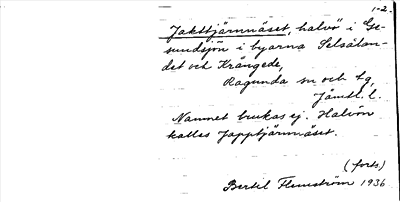 1-2.
Jakttjärnnäset, halvö i Ge-
sundsjön i byarna Selsålan-
det och Krångede,
Ragunda sn och tg,
Jämtl. l.
Namnet brukas ej. Halvön
kallas Japptjärnnäset.
(forts)
Bertil Flemström 1936